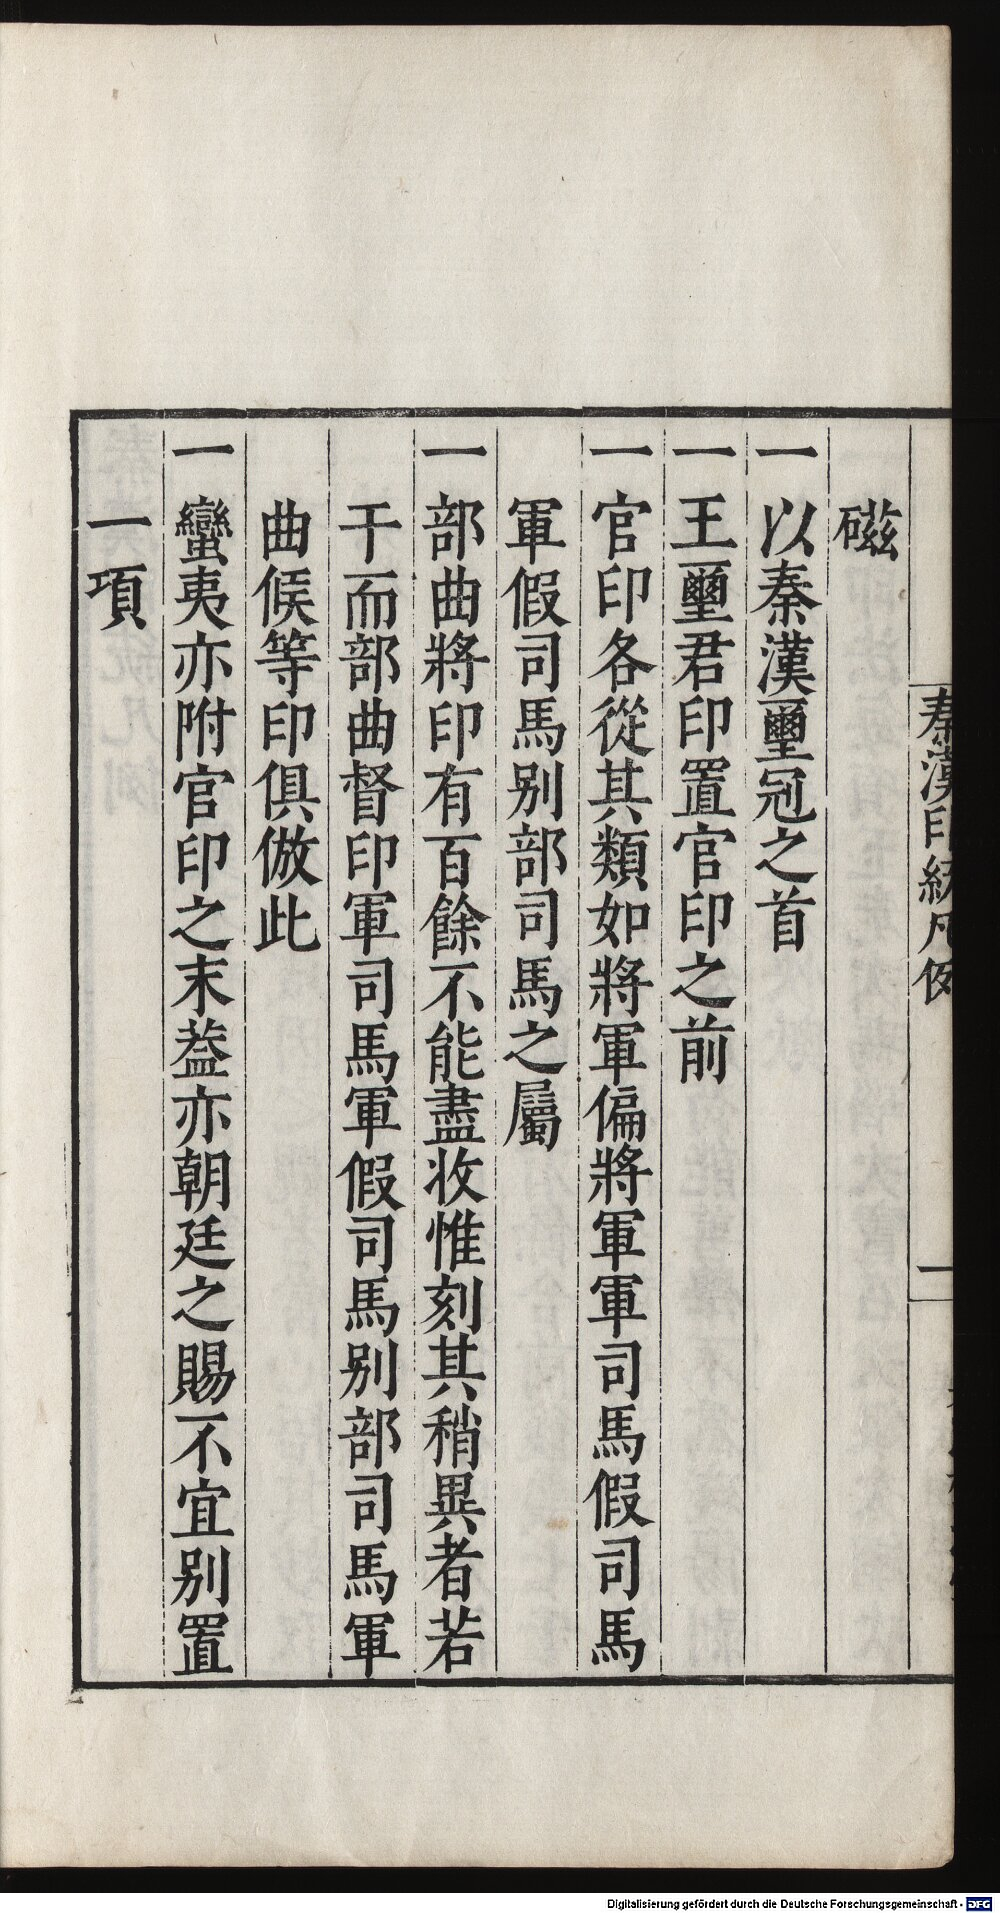 秦漢印統凡例
一
磁
一 以秦漢璽冠之首
一 王璽君印置官印之前
一 官印各從其類如將軍偏將軍軍司馬假司馬
軍假司馬别部司馬之屬
一 部曲將印有百餘不能盡收惟刻其稍異者若
干而部曲督印軍司馬軍假司馬别部司馬軍
曲候等印俱倣此
一 蠻夷亦附官印之末葢亦朝廷之賜不宜别置
一項
Digitalisierung gefördert durch die Deutsche Forschungsgemeinschaft - DFG